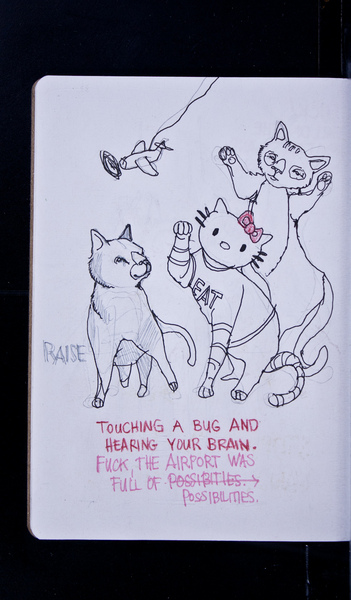 EAT
RAISE
TOUCHING A BUG AND
HEARING YOUR BRAIN.
FUCK, THE AIRPORT WAS
FULL OF POSSIBITIES.
POSSIBILITIES.